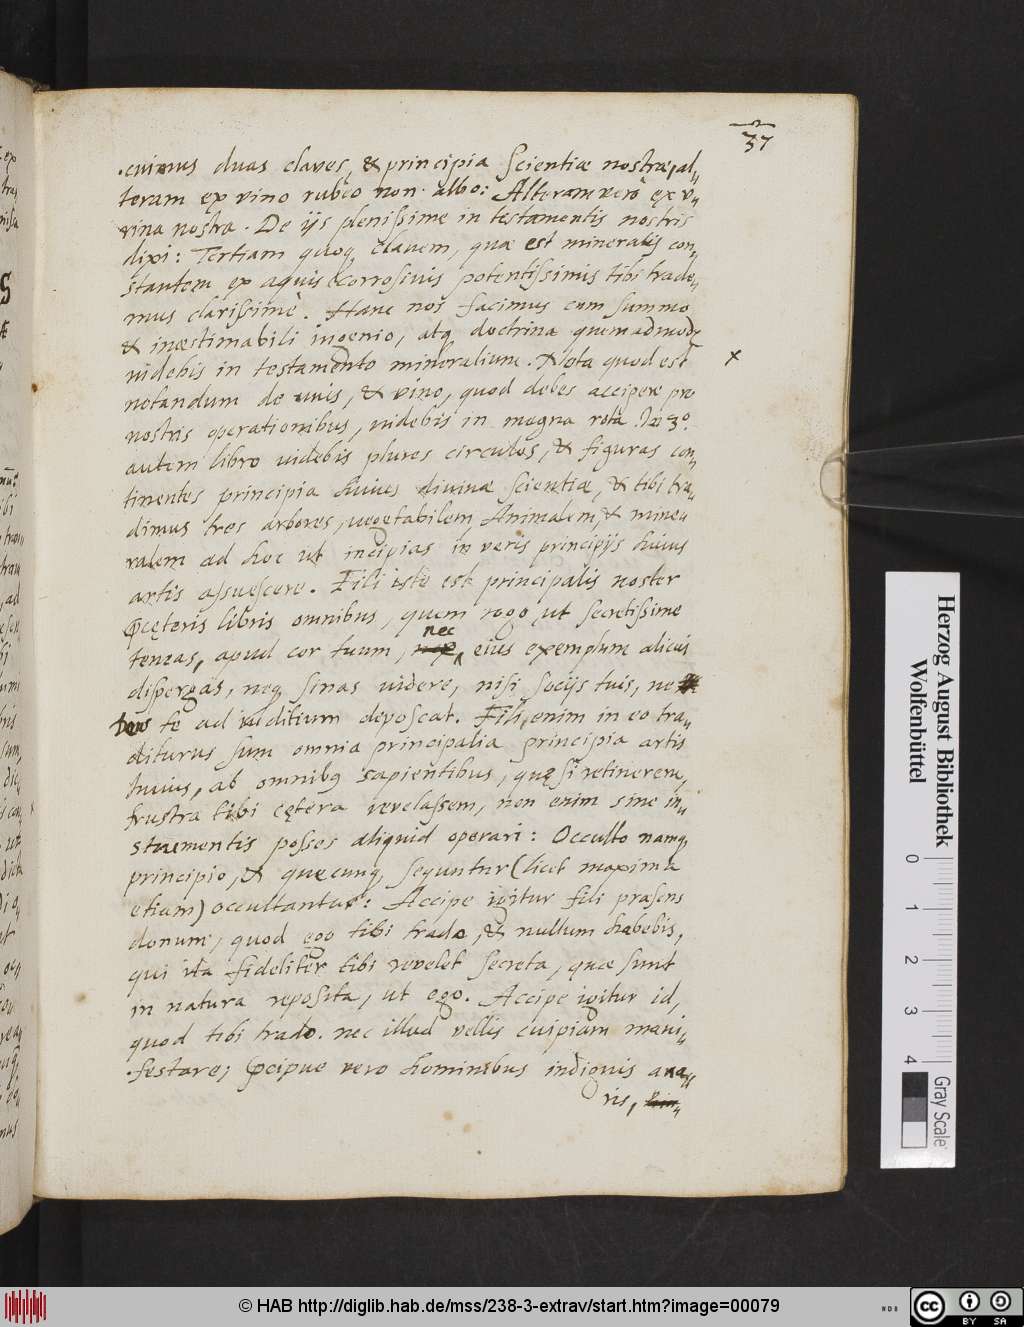 37
.cuimus duas claves, & principia Scientiæ nostræ, al„
teram ex vino rubeo non albo: Alteram verò ex v„
rina nostra. De ijs plenissime in testamentis nostris
dixi: Tertiam quoq, clavem, quæ est mineralis con„
stantem ex aquis corrosivis potentissimis tibi trade„
mus clarissimè. Hanc nos facimus cum summo
& inæstimabili ingenio, atq doctrina quemadmod
videbis in testamento mineralium. Nota quod est
x
notandum de uvis, & vino, quod debes accipere pro
nostris operationibus, videbis in magna rota. In 3º
autem libro videbis plures circulos, & figuras con„
tinentes principia huius divinæ scientiæ, & tibi tra„
dimus tres arbores, vegetabilem Animalem, & mine„
ralem ad hoc ut incipias in veris principijs huius
artis assuescere. Fili iste est principalis noster
p̄ cęteris libris omnibus, quem rogo, ut secretissime
teneas, apud cor tuum, nec eius exemplum alicui
dispergas, neq sinas videre, nisi socijs tuis, ne
Deus te ad iuditium deposcat. Fili, enim in eo tra„
diturus sum omnia principalia principia artis
huius, ab omnibq sapientibus, quę si retinerem,
frustra tibi cętera revelassem, non enim sine in„
strumentis posses aliquid operari: Occulto namq,
principio, & quęcunq, sequntur (licet maxima
etiam) occultantur: Accipe igitur fili præsens
donum, quod ego tibi trado, & nullum habebis,
qui ita fideliter tibi revelet secreta, quæ sunt
in natura reposita, ut ego. Accipe igitur id,
quod tibi trado. nec illud vellis cuipiam mani„
.festare, p̄cipue vero hominibus indignis ava„
ris,
Herzog August Bibliothek
Wolfenbüttel
0 1 2 3 4
Gray Scale
© HAB http://diglib.hab.de/mss/238-3-extrav/start.htm?image=00079
NDB
cc BY SA